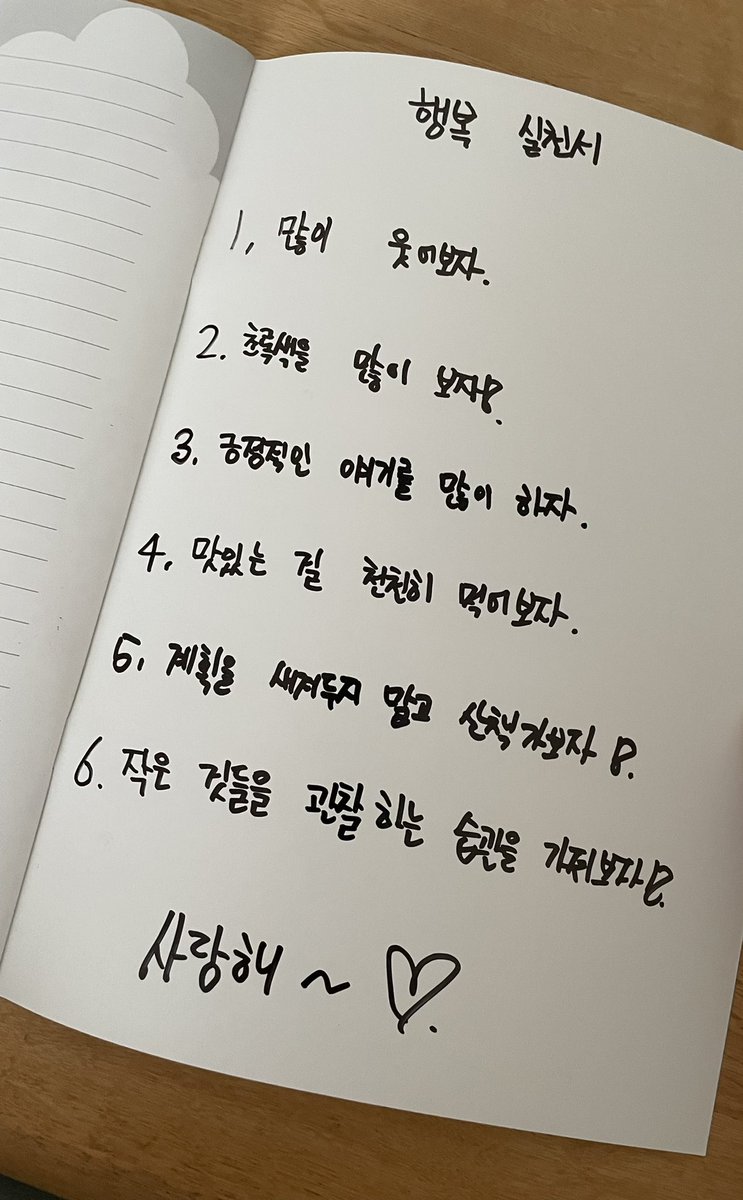 행복 실천서
1, 많이 웃어보자.
2. 초록색을 많이 보자!
3. 긍정적인 얘기를 많이 하자.
4, 맛있는 걸 천천히 먹어보자.
5. 계획을 새겨두지 말고 산책가보자!
6. 작은 것들을 관찰하는 습관을 가져보자!
사랑해 ~ ♡.